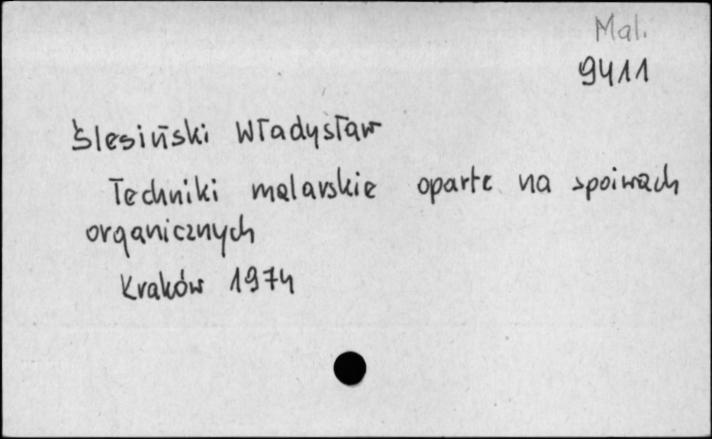 Mal.
9411
Ślesiński Władysław
Techniki malarskie oparte na spoiwach
organicznych
Kraków 1974